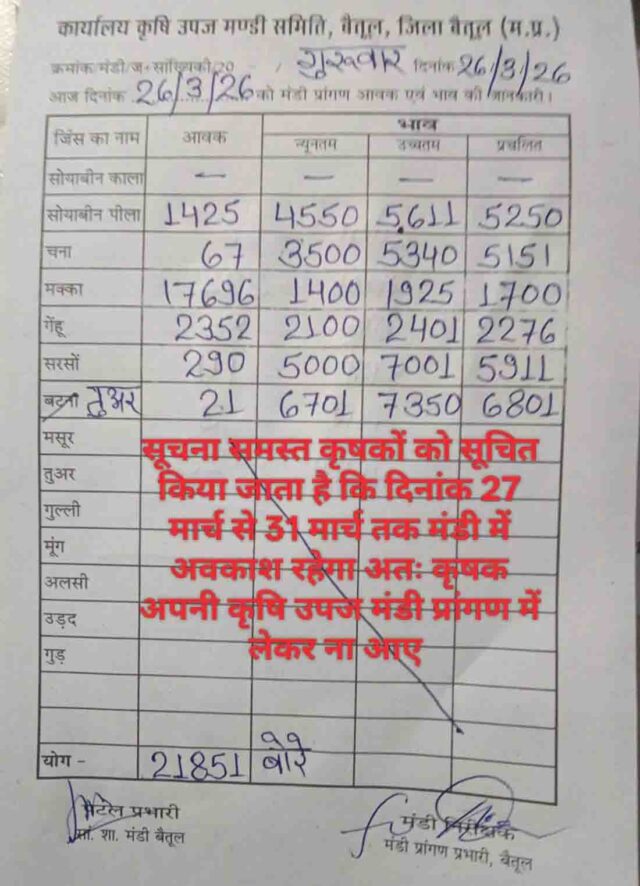 कार्यालय कृषि उपज मण्डी समिति, बैतूल, जिला बैतूल (म.प्र.)
क्रमांक/मंडी/ज-सांख्यिकी/20 - / गुरूवार दिनांक 26/3/26
आज दिनांक 26/3/26 को मंडी प्रांगण आवक एवं भाव की जानकारी।
जिंस का नाम आवक भाव
न्यूनतम उच्चतम प्रचलित
सोयाबीन काला — — — —
सोयाबीन पीला 1425 4550 5611 5250
चना 67 3500 5340 5151
मक्का 17696 1400 1925 1700
गेंहू 2352 2100 2401 2276
सरसों 290 5000 7001 5911
बटना तुअर 21 6701 7350 6801
मसूर
तुअर
गुल्ली
मूंग
अलसी
उड़द
गुड़
सूचना समस्त कृषकों को सूचित
किया जाता है कि दिनांक 27
मार्च से 31 मार्च तक मंडी में
अवकाश रहेगा अतः कृषक
अपनी कृषि उपज मंडी प्रांगण में
लेकर ना आए
योग - 21851 बोरे
प्रभारी
सां. शा. मंडी बैतूल
मंडी निरीक्षक
मंडी प्रांगण प्रभारी, बैतूल